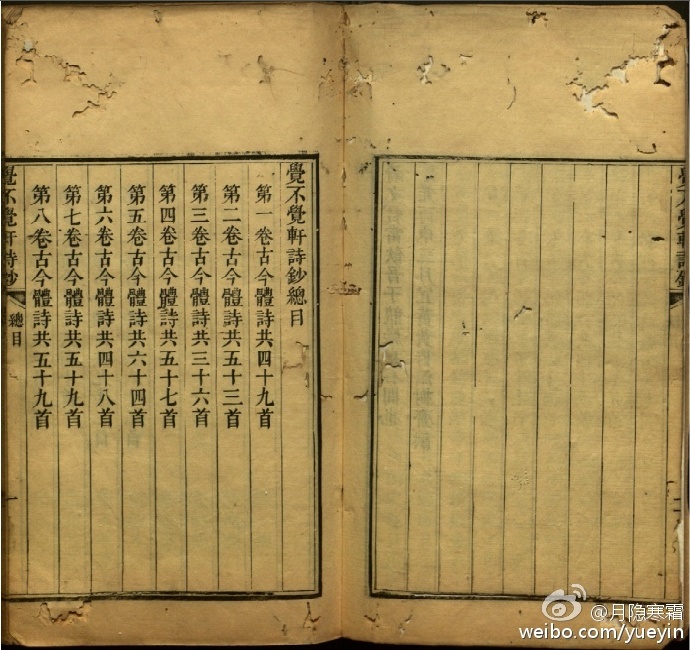 覺不覺軒詩鈔
二
覺不覺軒詩鈔總目
第一卷古今體詩共四十九首
第二卷古今體詩共五十三首
第三卷古今體詩共三十六首
第四卷古今體詩共五十七首
第五卷古今體詩共六十四首
第六卷古今體詩共四十八首
第七卷古今體詩共五十九首
第八卷古今體詩共五十九首
覺不覺軒詩鈔 總目 一
@月隐寒霜
weibo.com/yueyin